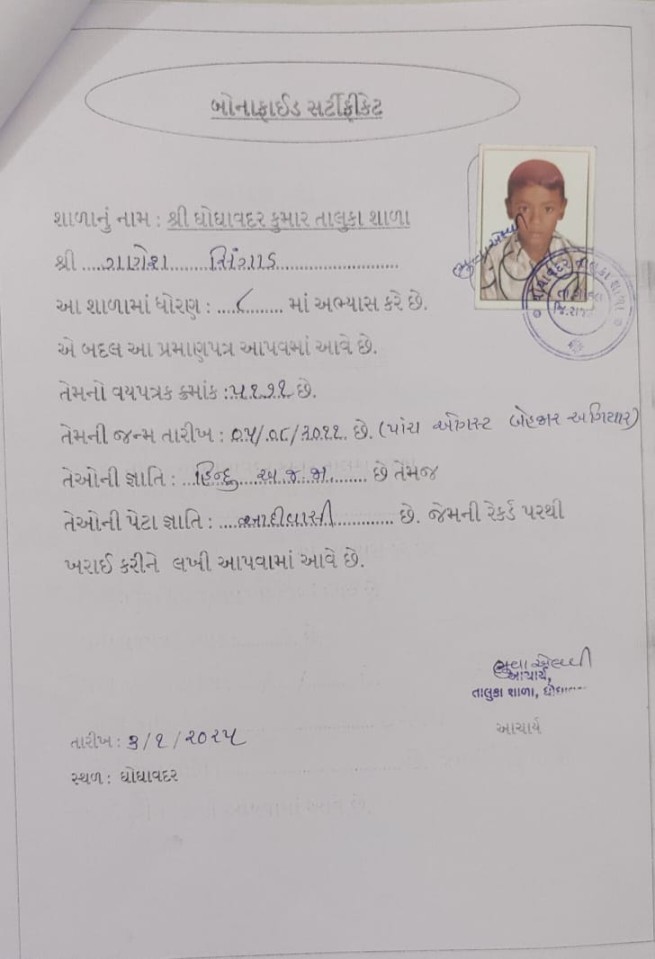 બોનાફાઈડ સર્ટીફીકેટ
શાળાનું નામ : શ્રી ઘોઘાવદર કુમાર તાલુકા શાળા
શ્રી ....ગણેશ........સિંગાડ..................
આ શાળામાં ધોરણ : ....૮....... માં અભ્યાસ કરે છે.
એ બદલ આ પ્રમાણપત્ર આપવામાં આવે છે.
તેમનો વયપત્રક ક્રમાંક : છે.
તેમની જન્મ તારીખ : ૦૫/૦૮/૨૦૧૧ છે. (પાંચ ઓગસ્ટ બેહજાર અગિયાર)
તેઓની જ્ઞાતિ : ...હિન્દુ....અ.જ.જા........ છે તેમજ
તેઓની પેટા જ્ઞાતિ : ....આદીવાસી............. છે. જેમની રેકર્ડ પરથી
ખરાઈ કરીને લખી આપવામાં આવે છે.
આચાર્ય,
તાલુકા શાળા,
આચાર્ય
તારીખ : ૩/૧/૨૦૨૫
સ્થળ : ઘોઘાવદર